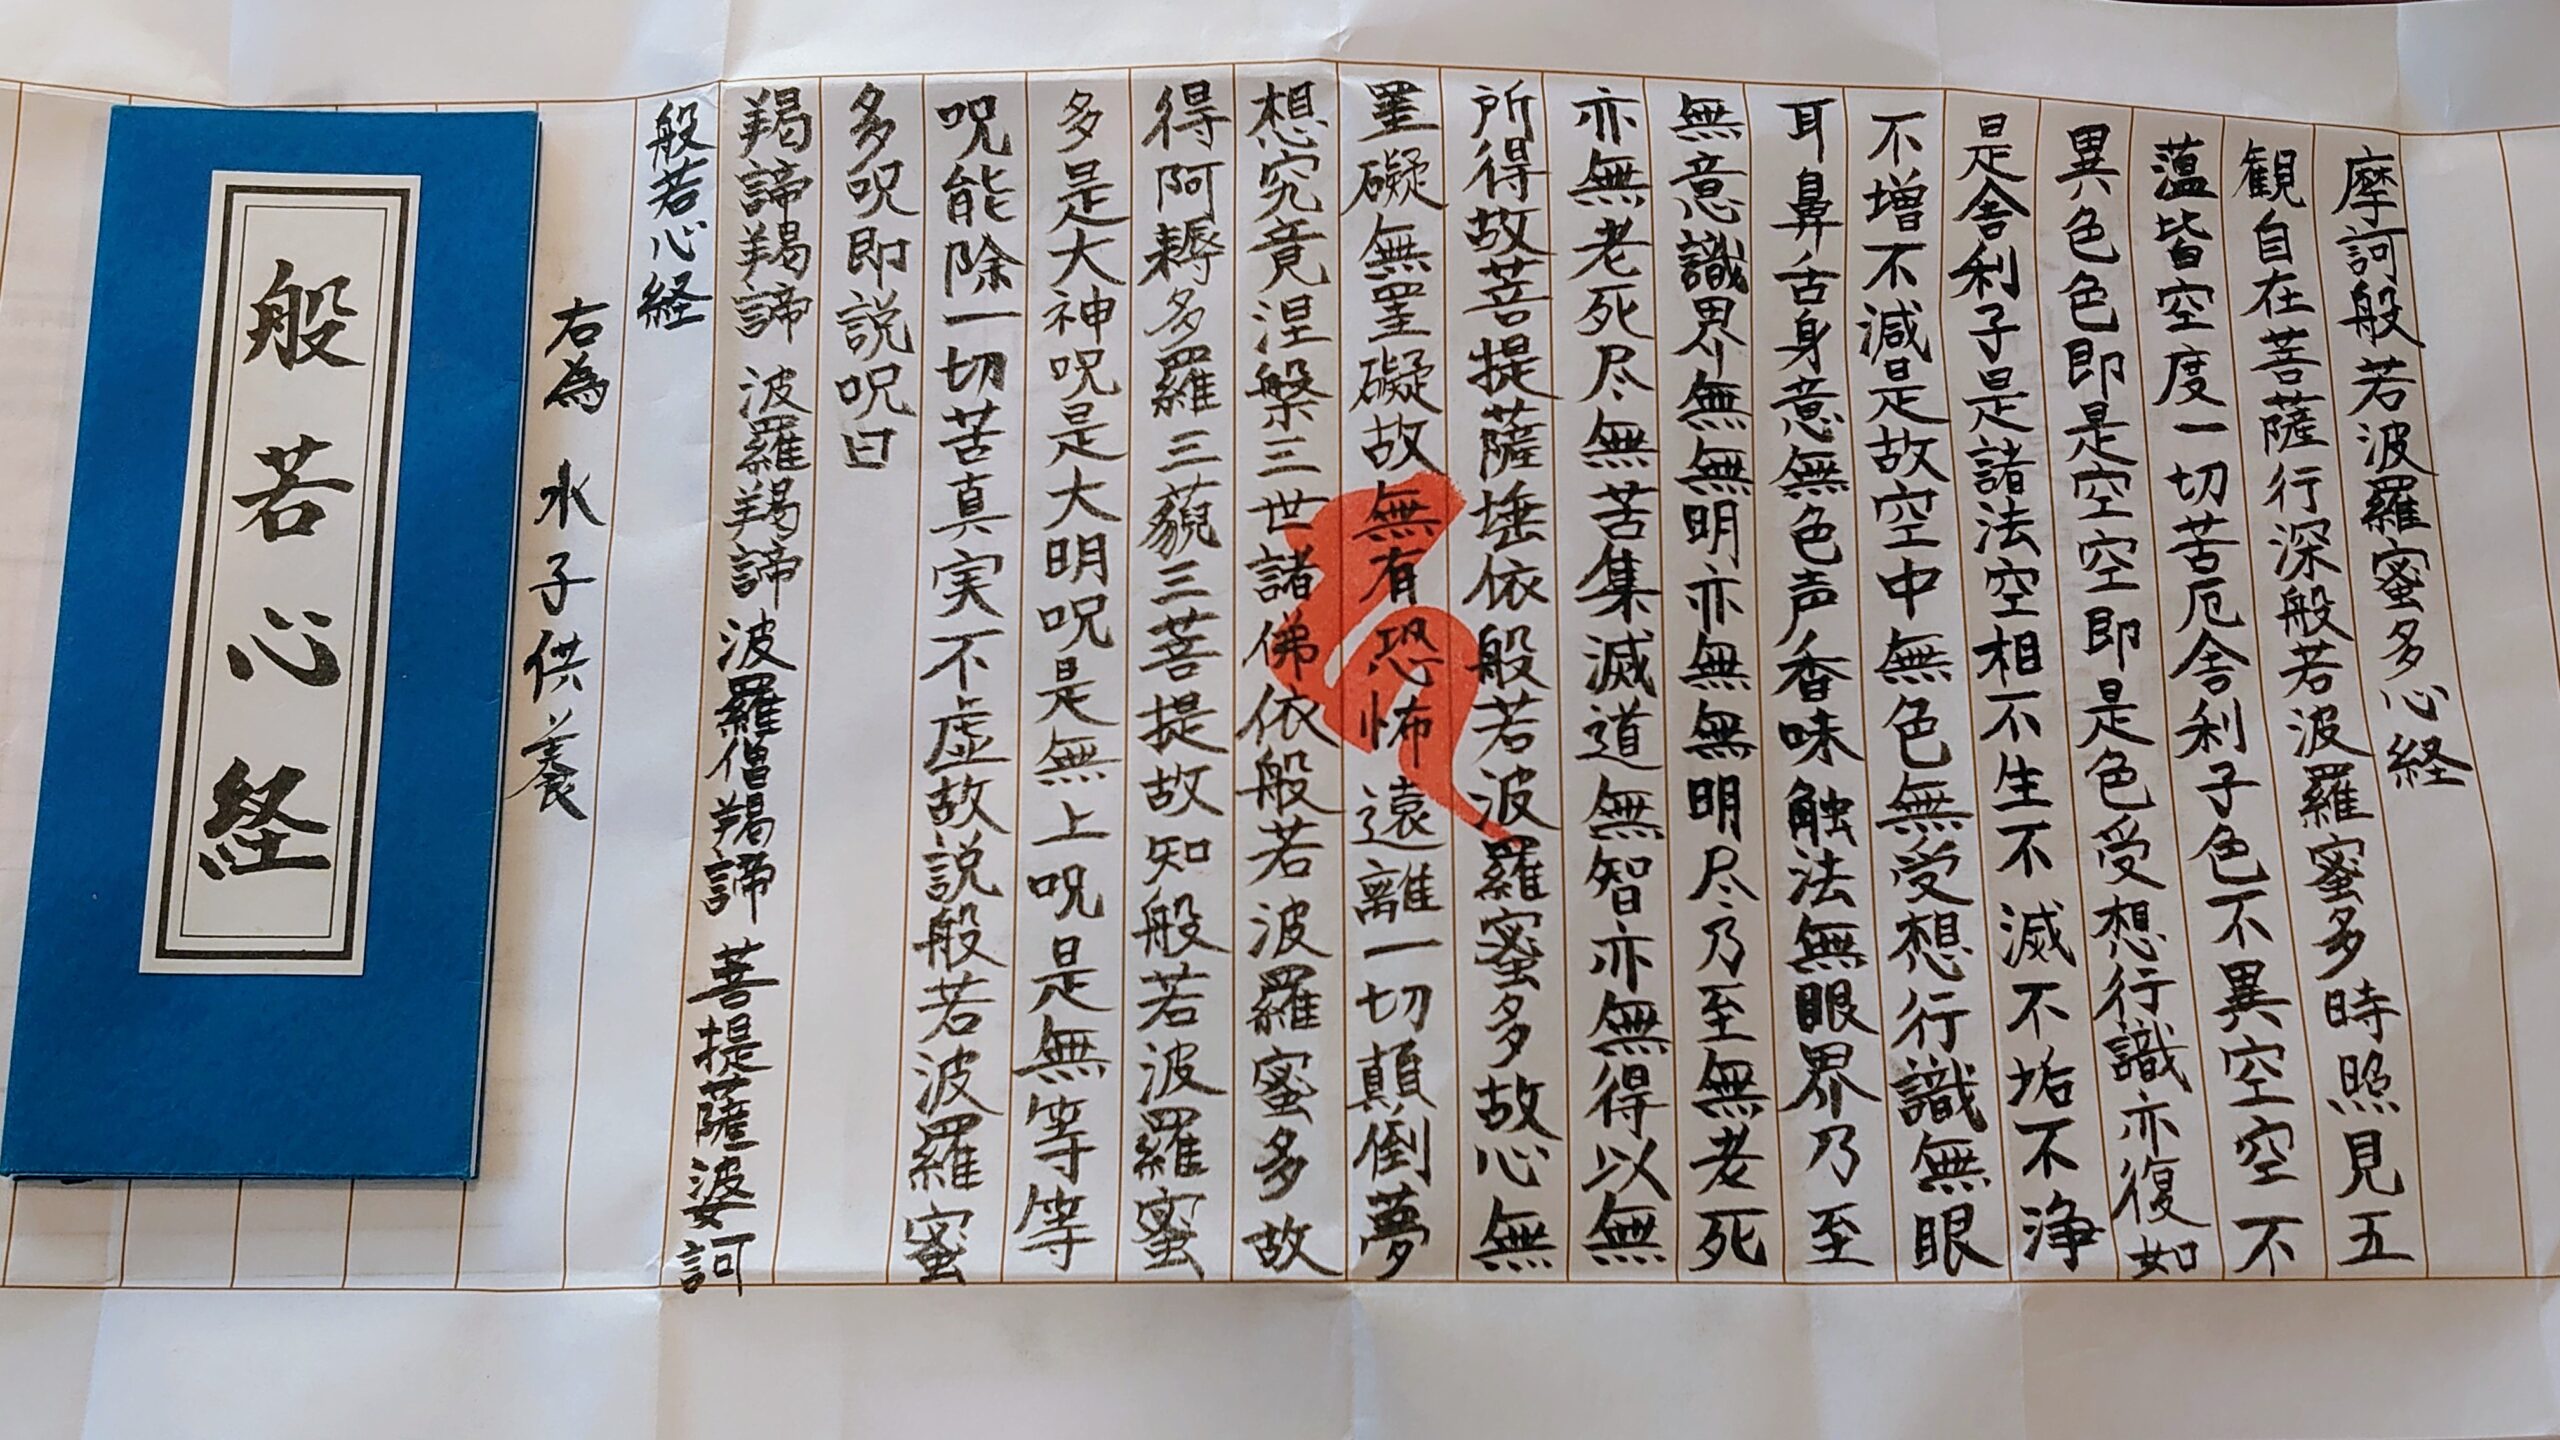 摩訶般若波羅蜜多心経
観自在菩薩行深般若波羅蜜多時照見五
薀皆空度一切苦厄舎利子色不異空空不
異色色即是空空即是色受想行識亦復如
是舎利子是諸法空相不生不滅不垢不浄
不増不減是故空中無色無受想行識無眼
耳鼻舌身意無色声香味触法無眼界乃至
無意識界無無明亦無無明尽乃至無老死
亦無老死尽無苦集滅道無智亦無得以無
所得故菩提薩埵依般若波羅蜜多故心無
罣礙無罣礙故無有恐怖遠離一切顛倒夢
想究竟涅槃三世諸佛依般若波羅蜜多故
得阿耨多羅三藐三菩提故知般若波羅蜜
多是大神呪是大明呪是無上呪是無等等
呪能除一切苦真実不虚故説般若波羅蜜
多呪即説呪曰
羯諦羯諦 波羅羯諦 波羅僧羯諦 菩提薩婆訶
般若心経
右為 水子供養
般若心経